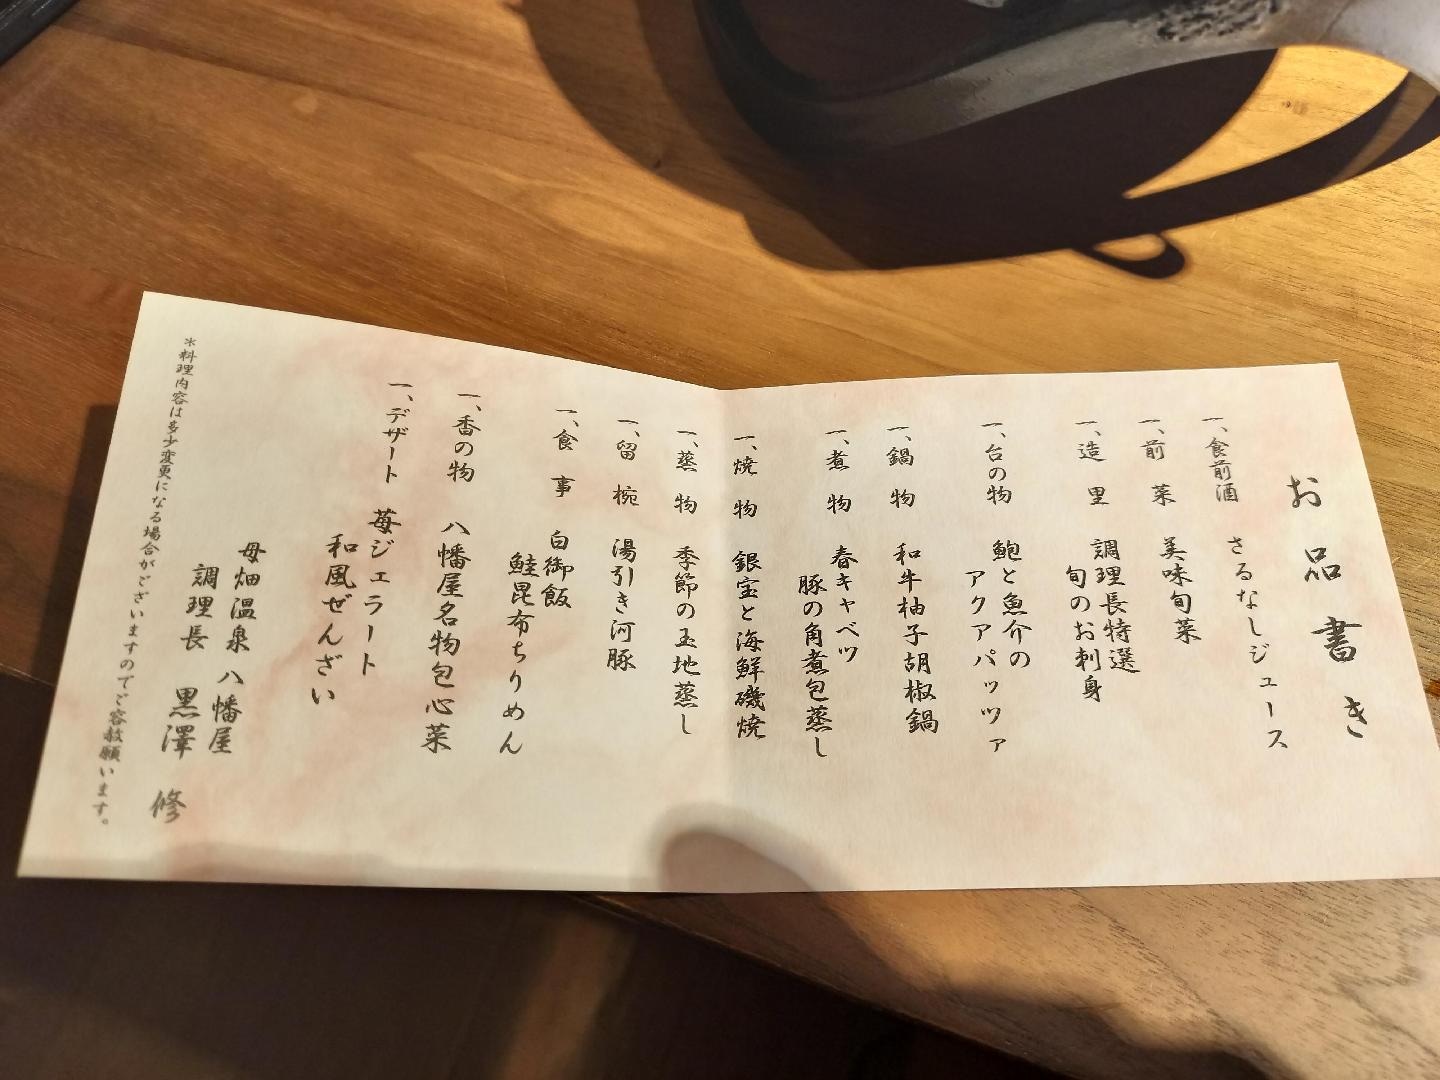 お品書き
一、食前酒 さるなしジュース
一、前菜 美味旬菜
一、造里 調理長特選
旬のお刺身
一、台の物 鮑と魚介の
アクアパッツァ
一、鍋物 和牛柚子胡椒鍋
一、煮物 春キャベツ
豚の角煮包蒸し
一、焼物 銀宝と海鮮磯焼
一、蒸物 季節の玉地蒸し
一、留椀 湯引き河豚
一、食事 白御飯
鮭昆布ちりめん
一、香の物 八幡屋名物包心菜
一、デザート 苺ジェラート
和風ぜんざい
母畑温泉 八幡屋
調理長 黒澤 修
※料理内容は多少変更になる場合がございますのでご容赦願います。